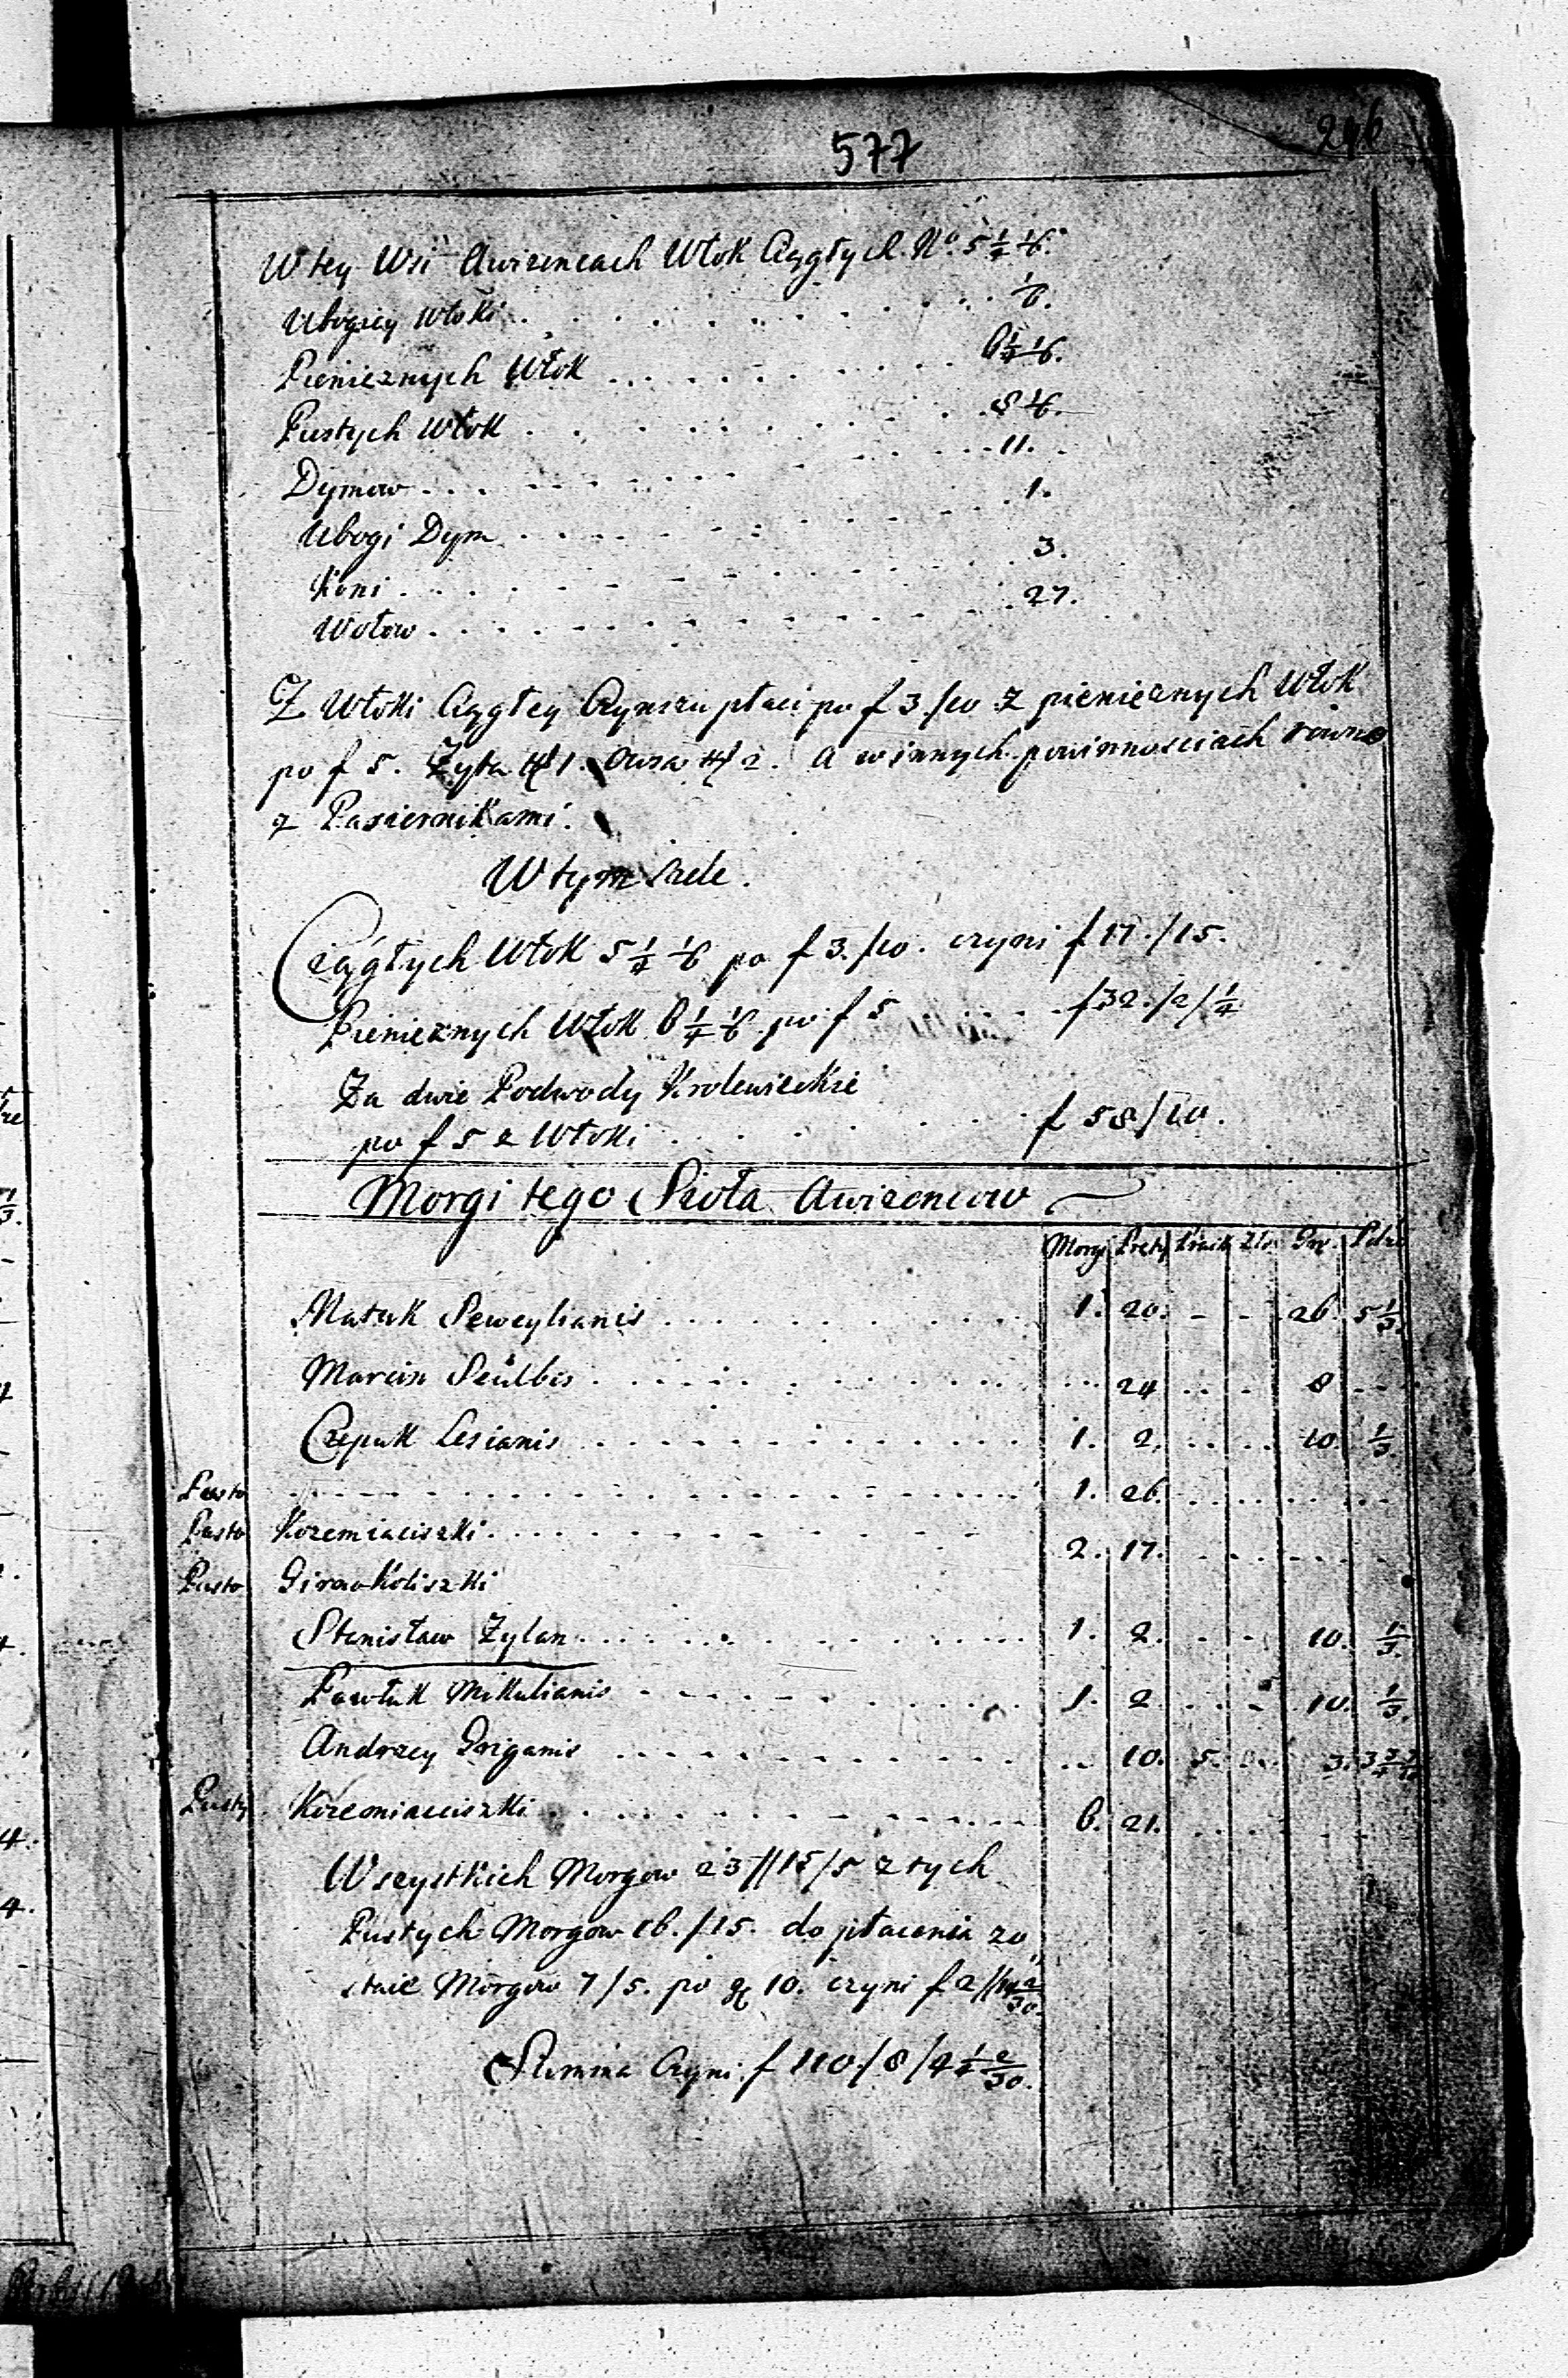 577
246
W tey Wsi Awizencach Włok Ciągłych No. 5 1/4 1/6.
Ubogiey Włoki . . . 1/6.
Pienieznych Włok . . . 6 1/4 1/6.
Pustych Włok . . . 8 1/6.
Dymow . . . 11.
Ubogi Dym . . . 1.
Koni . . . 3.
Wołow . . . 27.
Z Włoki Ciągłey Czynszu płaci po f 3./10 z pienieznych Włok
po f 5. Zyta 1. Owsa 2. A w innych powinnosciach rowno
z Pasiernikami.
W tym Siele.
Ciągłych Włok 5 1/4 1/6 po f 3./10. czyni f 17./15.
Pienieznych Włok 6 1/4 1/6 po f 5 . . . f 32./2/ 1/4
Za dwie Podwody Krolewieckie
po f 5 z Włoki . . . f 58/10.
Morgi tego Sioła Awizencow
Morgi Pręty Zło. Gr.
Matuk Peweylianis . . . 1. 20. - - 26. 5 1/3.
Marcin . . . 24 . . 8 . .
Czepuk Lesianis . . . 1. 2. . . 10. 1/3.
Pusto . . . 1. 26. . . .
Pusto Kozemiaciszki . . . 2. 17. . . .
Pusto Girwokoliszki
Stanisław Zylan . . . 1. 2. - - 10. 1/3.
Pawluk Mikulianis . . . 1. 2 . . 10. 1/3.
Andrzey Griganis . . . 10. 5. . . 3. 3
Pusty Kozemiaciszki . . . 6. 21. . . .
Wszystkich Morgow 23//15/5 z tych
Pustych Morgow 16./15. do płacenia zo
staie Morgow 7/5. po gr 10. czyni f 2//
Summa Czyni f 110./8/4 1/4 2/30.